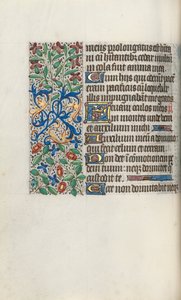 meus prolongatus est habi
tavi cu habitantib; cedar multum
incola fuit anima mea
Cum hijs qui oderunt pac
eram pacificus cu loquebar
illis impugnabant me gratis
oculos meos i
montes unde veni
et auxilium michi
Auxilium meu a domino
qui fecit celum et terram
Non det i comotionem p
dem tuum neqz dormitet q
custodit te
Ecce non dormitabit neqz